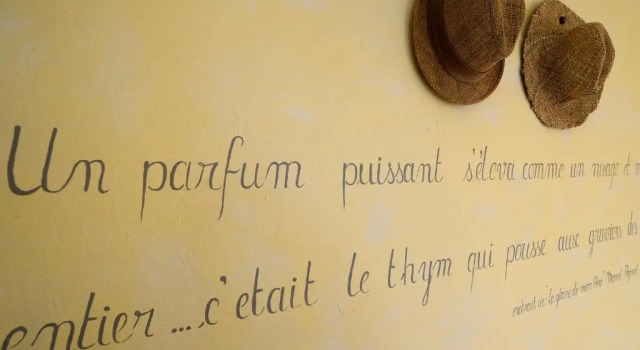 Un parfum puissant s'éleva comme un nuage et
entier ... c'etait le thym qui pousse aux graviers des
extrait de "La gloire de mon Père" Marcel Pagnol